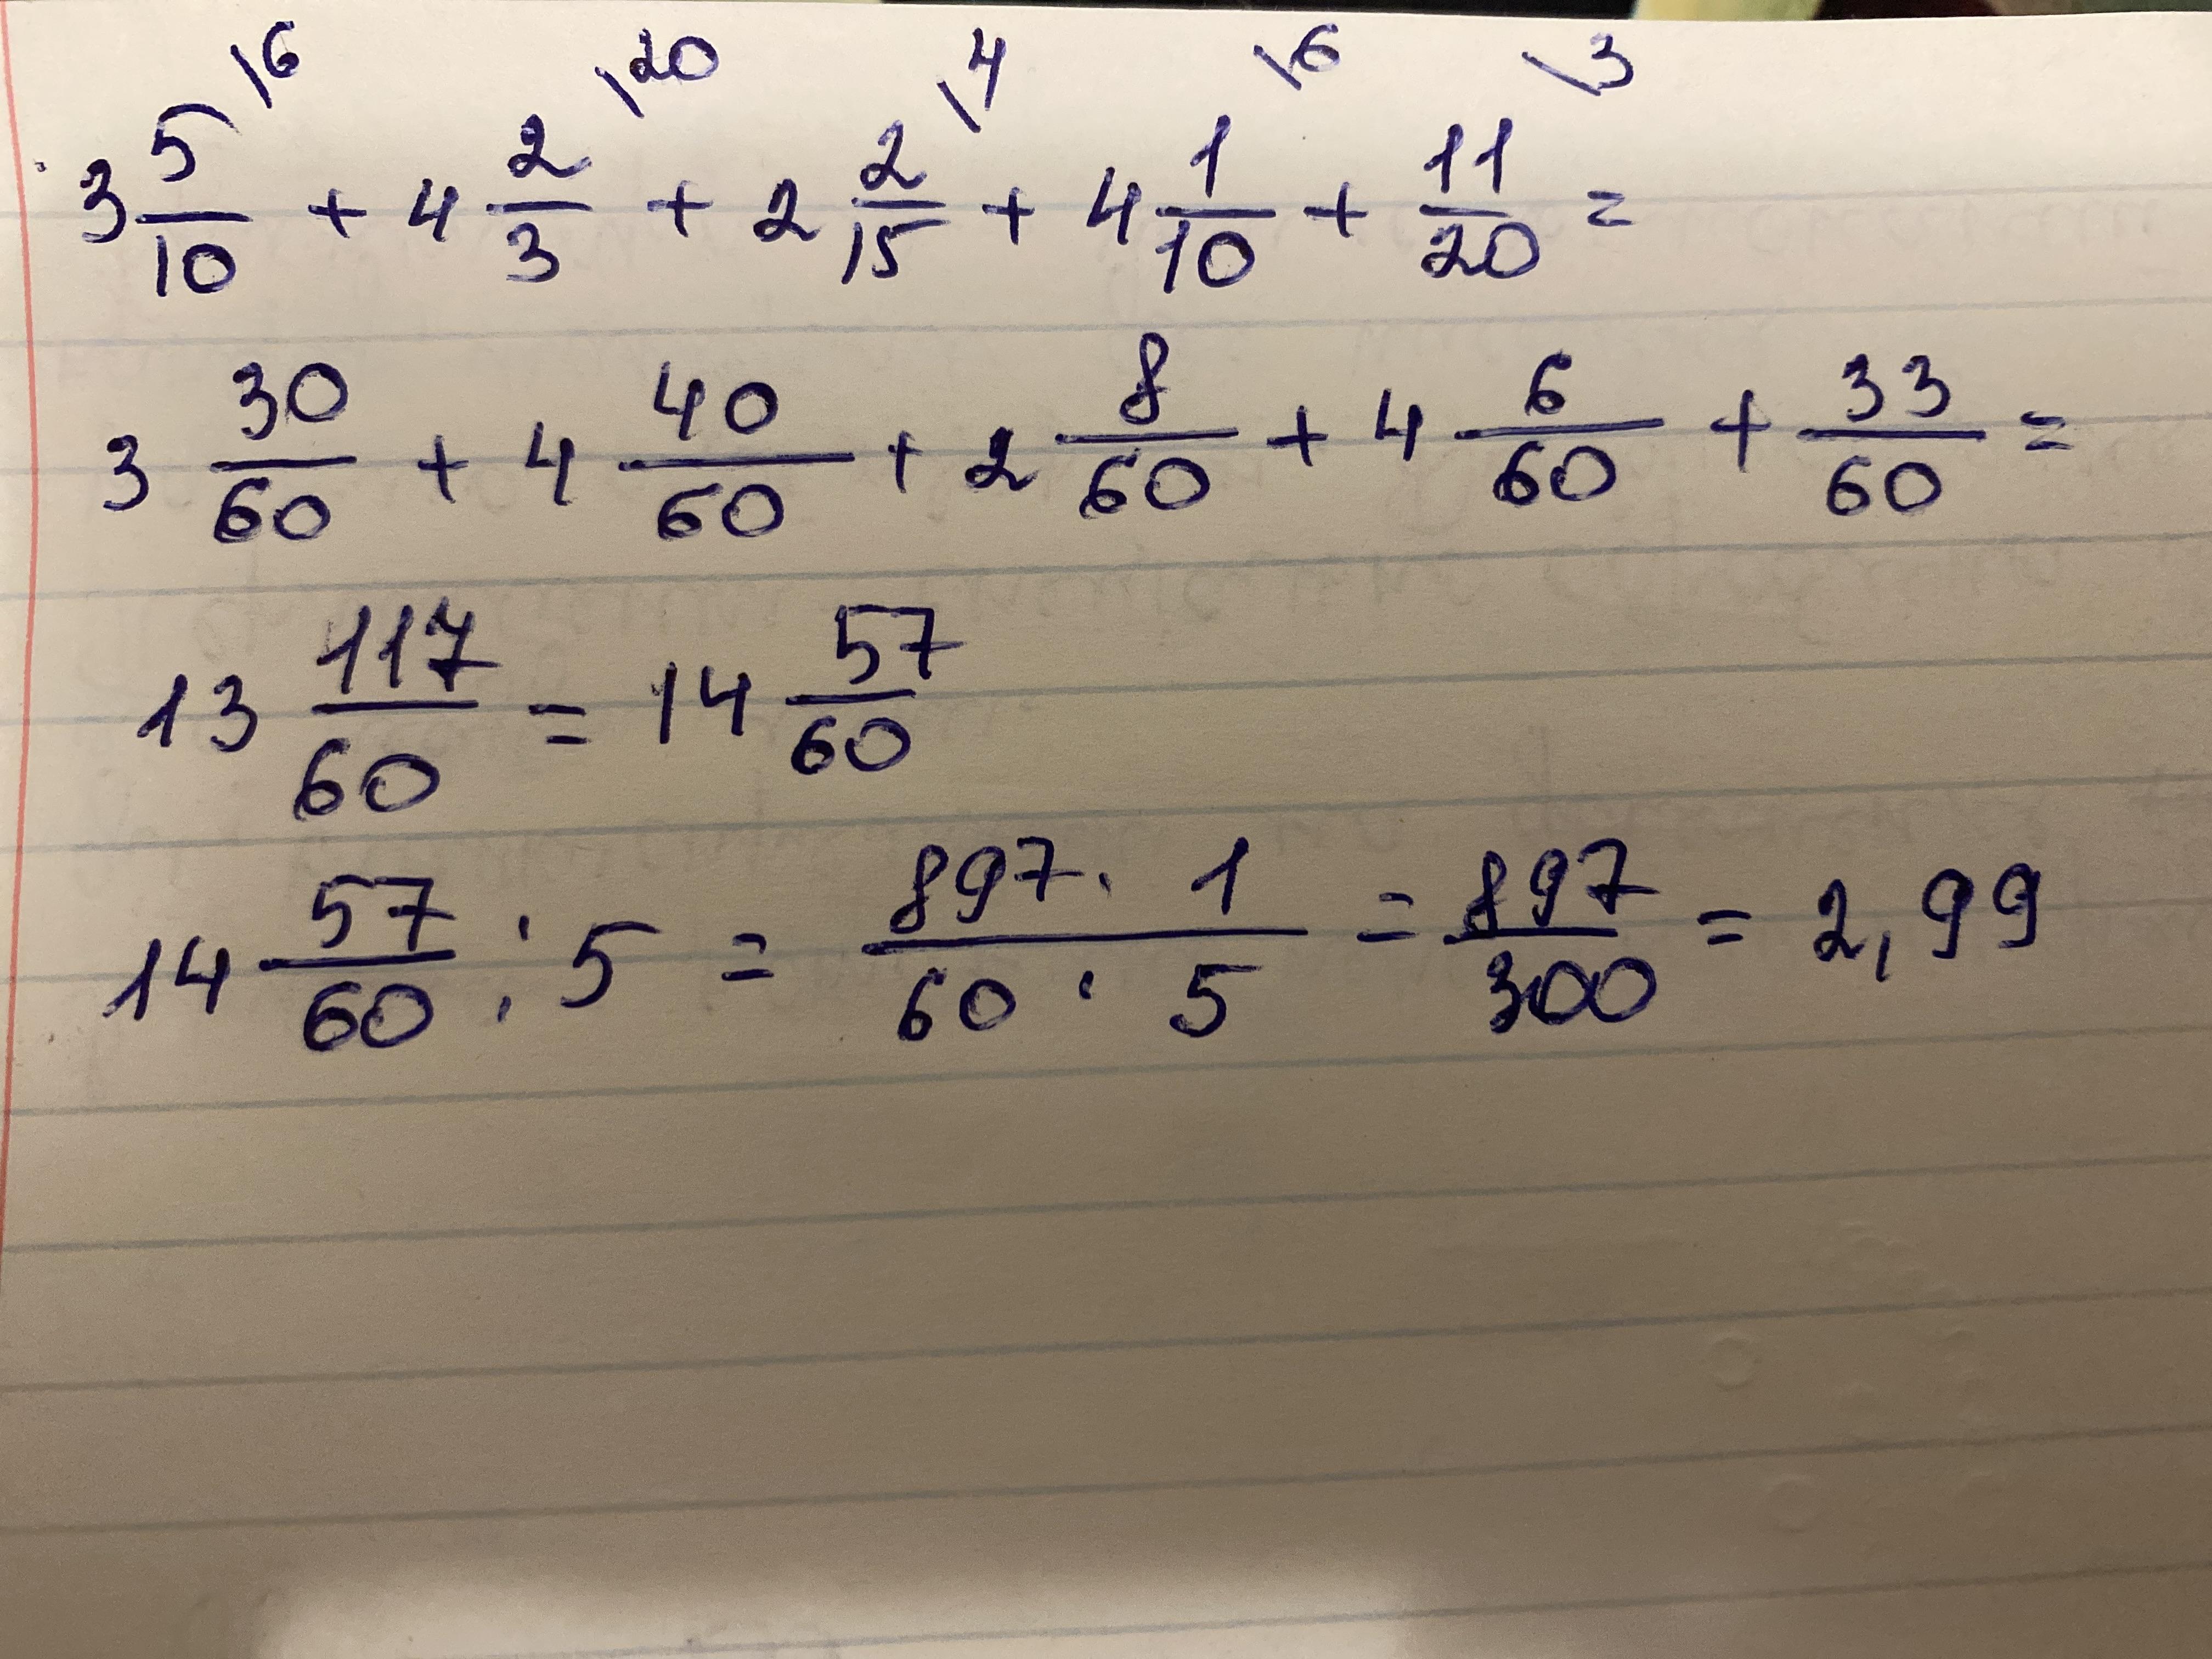 \6 \20 \4 \6 \3
3 5/10 + 4 2/3 + 2 2/15 + 4 1/10 + 11/20 =
3 30/60 + 4 40/60 + 2 8/60 + 4 6/60 + 33/60 =
13 117/60 = 14 57/60
14 57/60 : 5 = 897 · 1/60 · 5 = 897/300 = 2,99